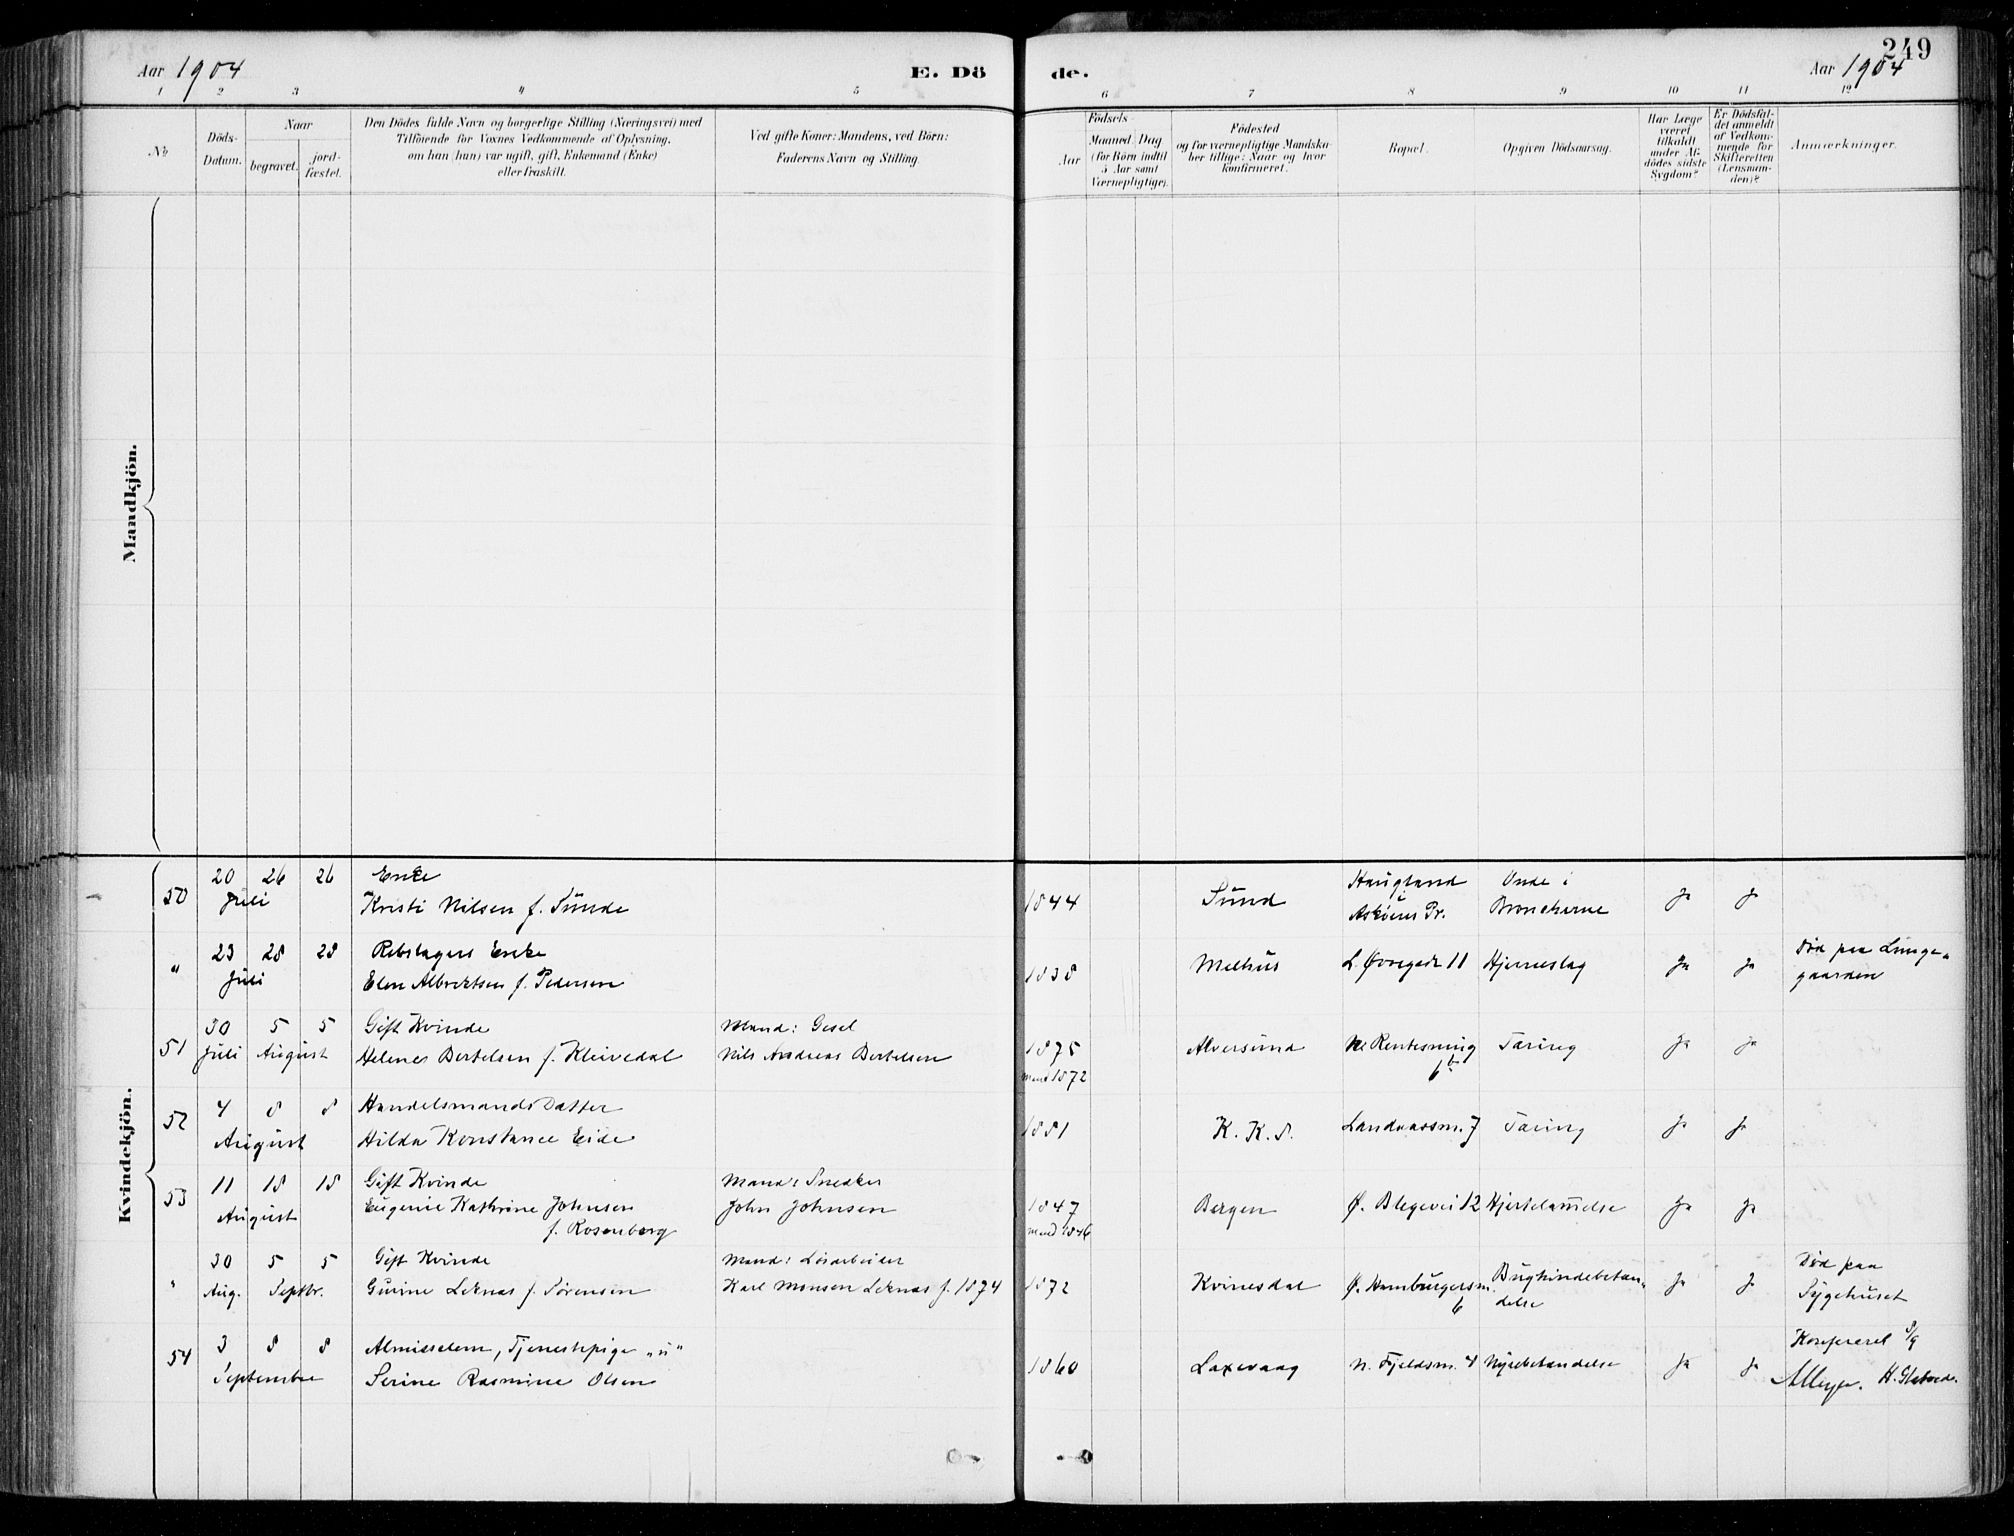 249
Aar 1904
E. Dö
de.
Aar 1904
1 2 3 4 5 6 7 8 9 10 11 12
No
Döds-
Datum.
Naar
begravet.
jord-
fæstet.
Den Dödes fulde Navn og borgerlige Stilling (Næringsvei) med
Tilföiende for Voxnes Vedkommende af Oplysning,
om han (hun) var ugift, gift, Enkemand (Enke)
eller fraskilt.
Ved gifte Koner: Mandens, ved Börn:
Faderens Navn og Stilling.
Födsels
Aar
Maaned Dag
(for Börn indtil
5 Aar samt
Værnepligtige).
Födested
og for værnepligtige Mandska-
ber tillige: Naar og hvor
konfirmeret.
Bopæl.
Opgiven Dödsaarsag.
Har Læge
været
tilkaldt
under Af-
dödes sidste
Sygdom?
Er Dödsfal-
det anmeldt
af Vedkom-
mende for
Skifteretten
(Lensman-
den)?
Anmærkninger.
Mandkjön.
Kvindekjön.
50
20 26 26
Juli
Enke
Kristi Nilsen f. Sunde
1844
Sund
Haugland
i
Askøens Pr.
Onde i
Bronckerne
Ja
Ja
"
23 28 28
Juli
Rebslagers Enke
Elen Albrektsen f. Pedersen
1838
Melhus
L. Øvregade 11
Hjerneslag
Ja
Ja
Död paa Lunge-
gaarden
51
30 5 5
Juli August
Gift Kvinde
Helene Bertelsen f. Kleivedal
Mand: Gesel
Nils Andreas Bertelsen
1875
mand 1872
Alversund
N. Rentesmug
6b
Tæring
Ja
Ja
52
4 8 8
August
Handelsmands Datter
Hilda Konstance Eide
1881
K. K. S.
Landaassm. 7
Tæring
Ja
Ja
53
11 18 18
August
Gift Kvinde
Eugenie Kathrine Johnsen
f. Rosenberg
Mand: Snedker
John Johnsen
1847
mand 1846
Bergen
Ø. Blegevei 12
Hjertelammelse
Ja
Ja
"
30 5 5
Aug. Septbr.
Gift Kvinde
Gurine Leknes f. Sørensen
Mand: Løsarbeider
Karl Monsen Leknes f. 1874
1872
Kvinesdal
Ø. Hamburgersm.
6
Bughindebetæn-
delse
Ja
Ja
Död paa
Sygehuset
54
3 8 8
September
Almisselem, Tjenestepige "u"
Serine Rasmine Olsen
1860
Laxevaag
N. Fjeldsm. 4
Nyrebetændelse
Ja
Ja
Konfereret 8/9